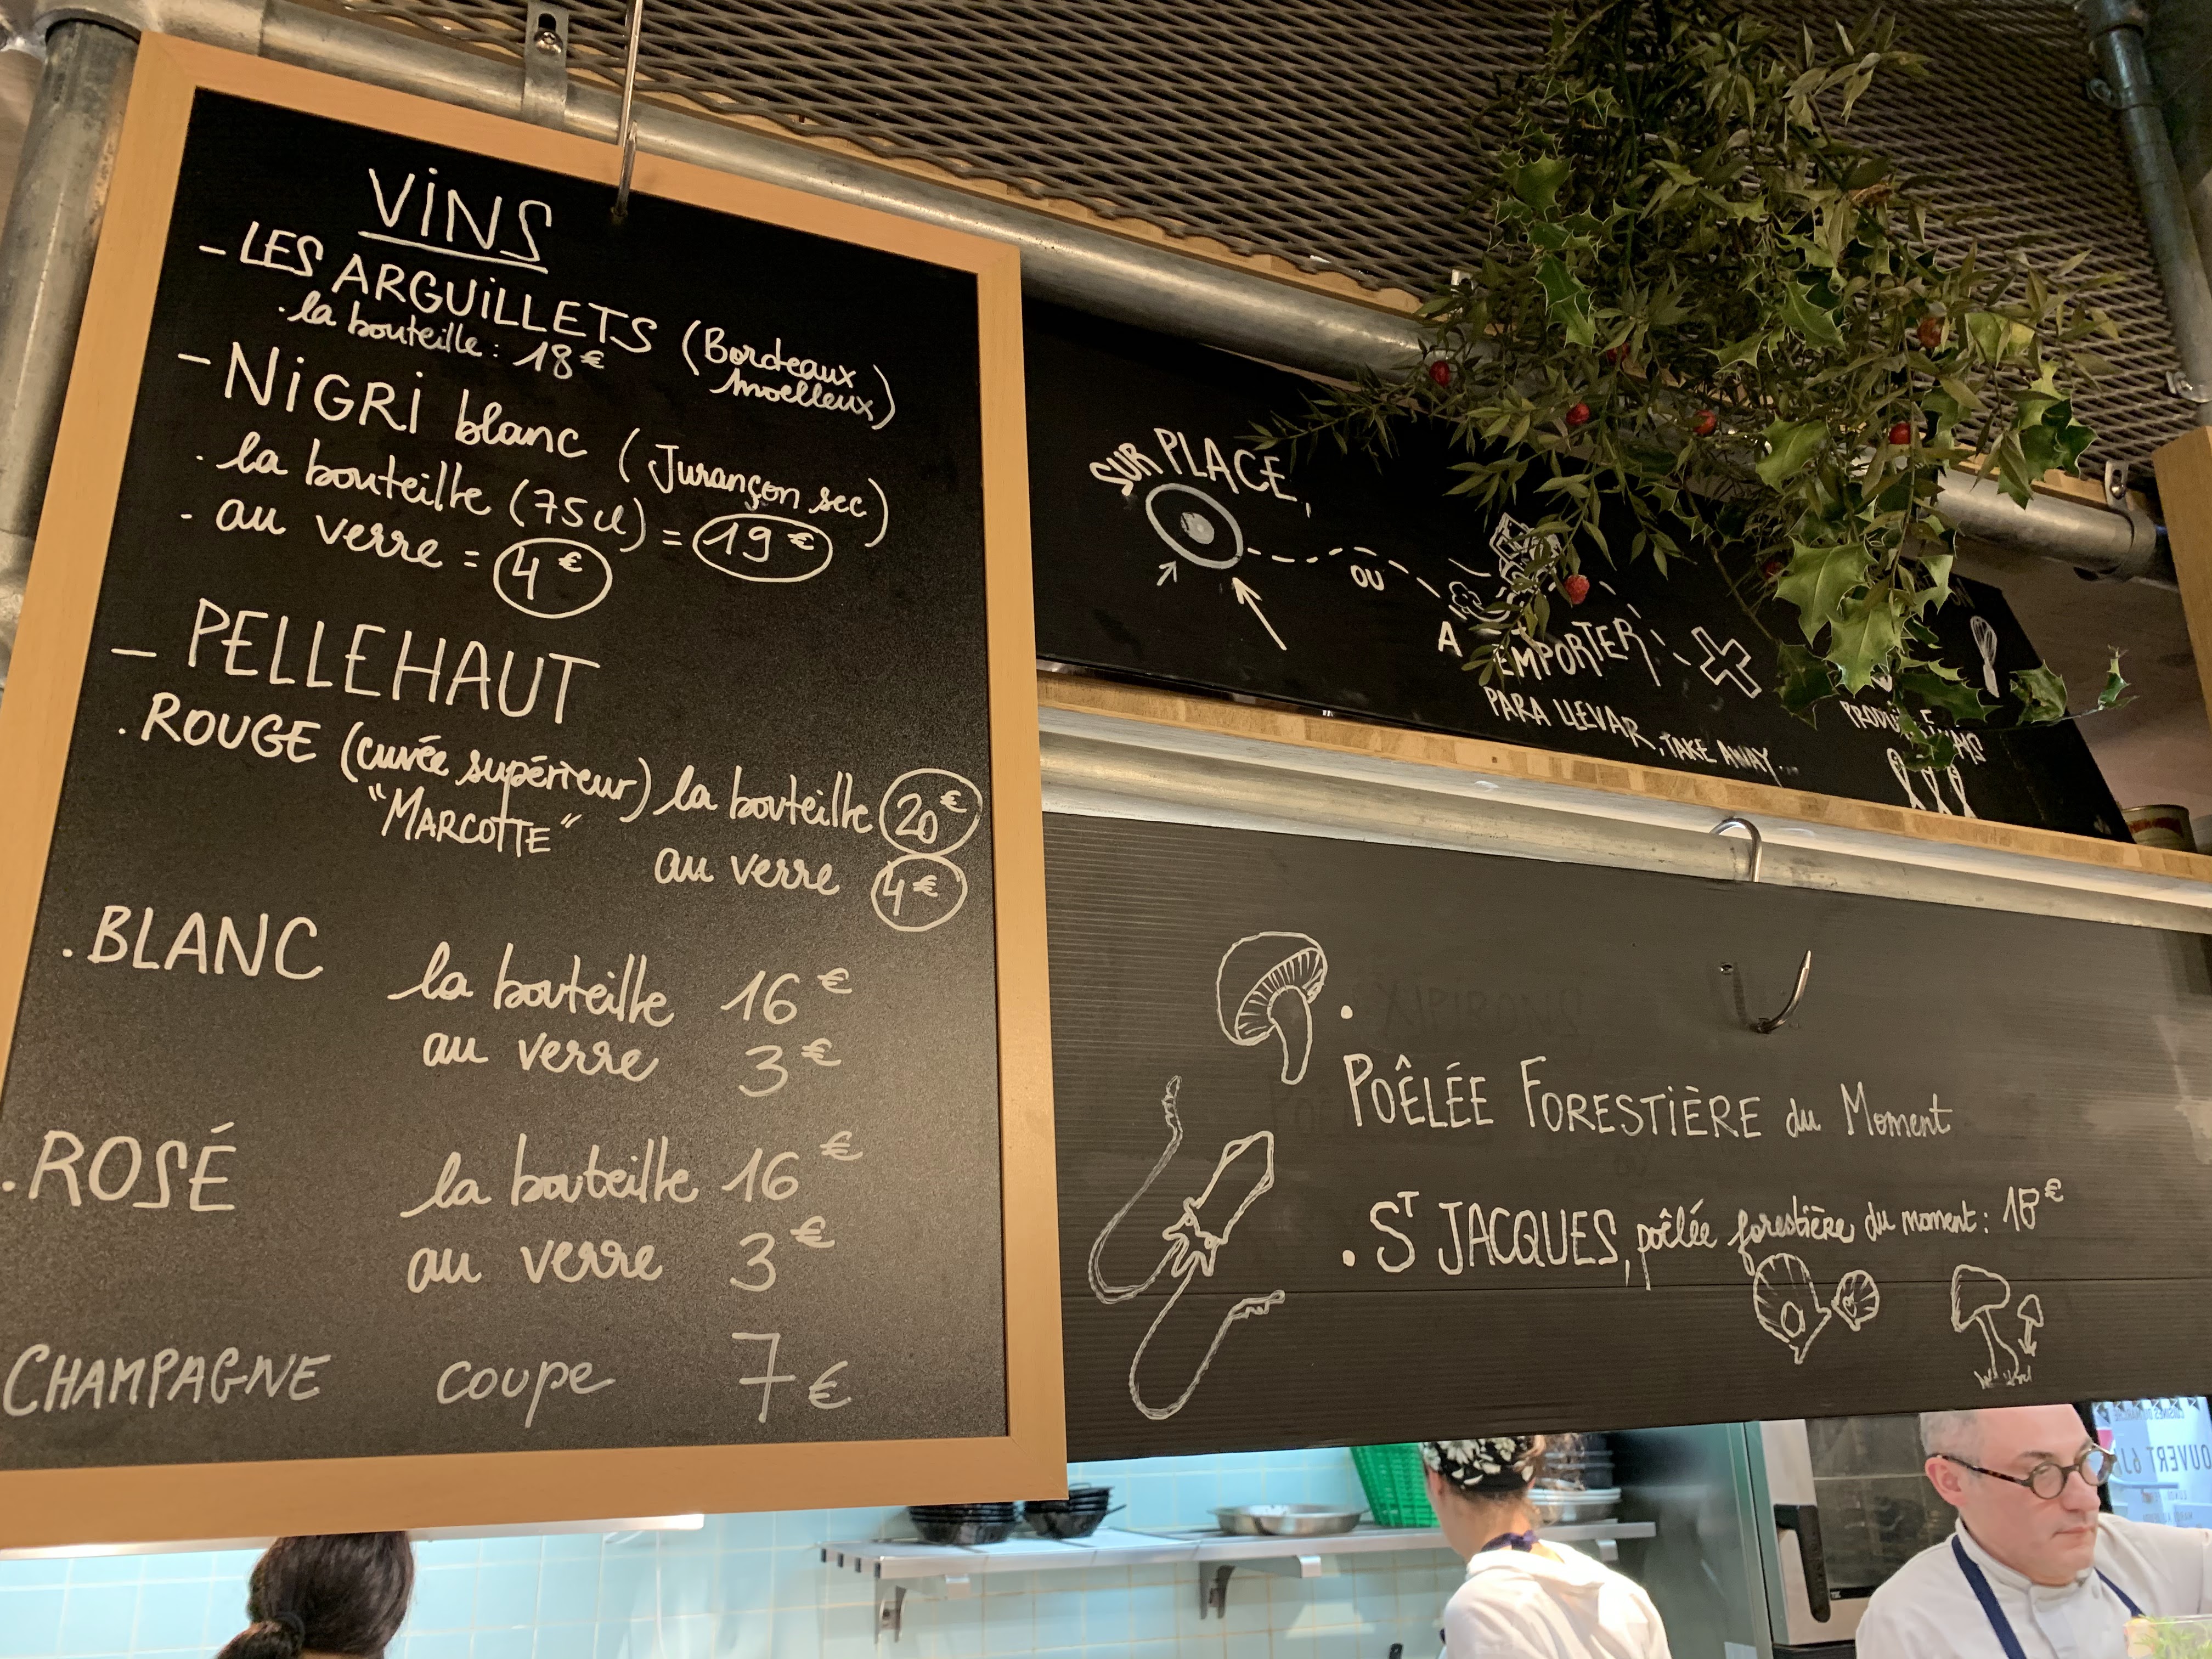 VINS
- LES ARGUILLETS (Bordeaux moelleux)
. la bouteille : 18€
- NIGRI blanc (Jurançon sec)
. la bouteille (75cl) = 19€
. au verre = 4€
- PELLEHAUT
. ROUGE (cuvée supérieur) la bouteille 20€
"MARCOTTE" au verre 4€
. BLANC la bouteille 16€
au verre 3€
. ROSÉ la bouteille 16€
au verre 3€
CHAMPAGNE coupe 7€
SUR PLACE,
OU
A EMPORTER
PARA LLEVAR, TAKE AWAY...
.
POÊLÉE FORESTIÈRE du Moment
. ST JACQUES, poêlée forestière du moment : 18€